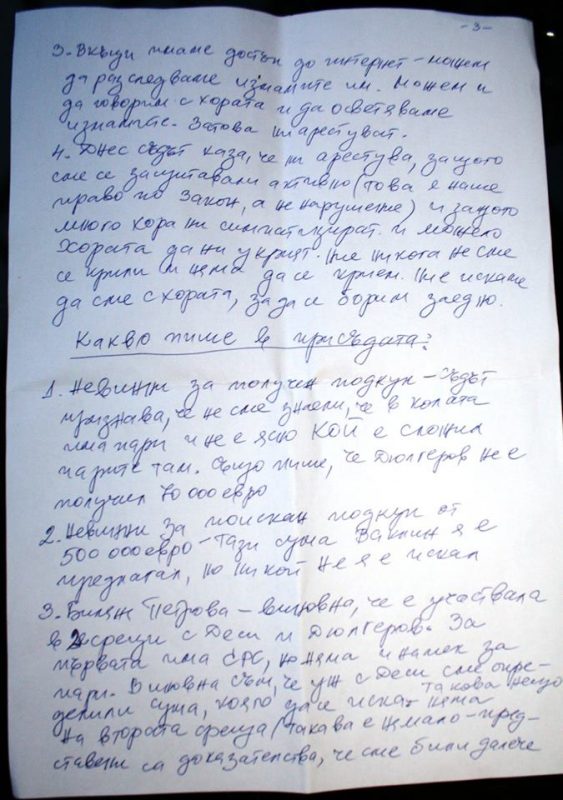 -3-
3. Вкъщи имаме достъп до интернет - можем
да разследваме измамите им. Можем и
да говорим с хората и да осветяваме
измамите. Затова ни арестуват.
4. Днес съдът каза, че ни арестува, защото
сме се защитавали активно (това е наше
право по Закон, а не нарушение) и защото
много хора ни симпатизират и можело
хората да ни укрият. Ние никога не сме
се крили и няма да се крием. Ние искаме
да сме с хората, за да се борим заедно.
Какво пише в присъдата?
1. Невинни за получен подкуп - съдът
признава, че не сме знаели, че в колата
има пари и не е ясно КОЙ е сложил
парите там. Също пише, че Дюлгеров не е
получил 70 000 евро
2. Невинни за поискан подкуп от
500 000 евро - тази сума Ваклин я е
предлагал, но никой не я е искал
3. Биляна Петрова - виновна, че е участвала
в 2 срещи с Деси и Дюлгеров. За
първата има СРС, но няма и намек за
пари. Виновна съм, че уж с Деси сме опре-
делили сума, която да се иска. Такова нещо няма
На втората среща (такава е нямало - пред-
ставени са доказателства, че сме били далече